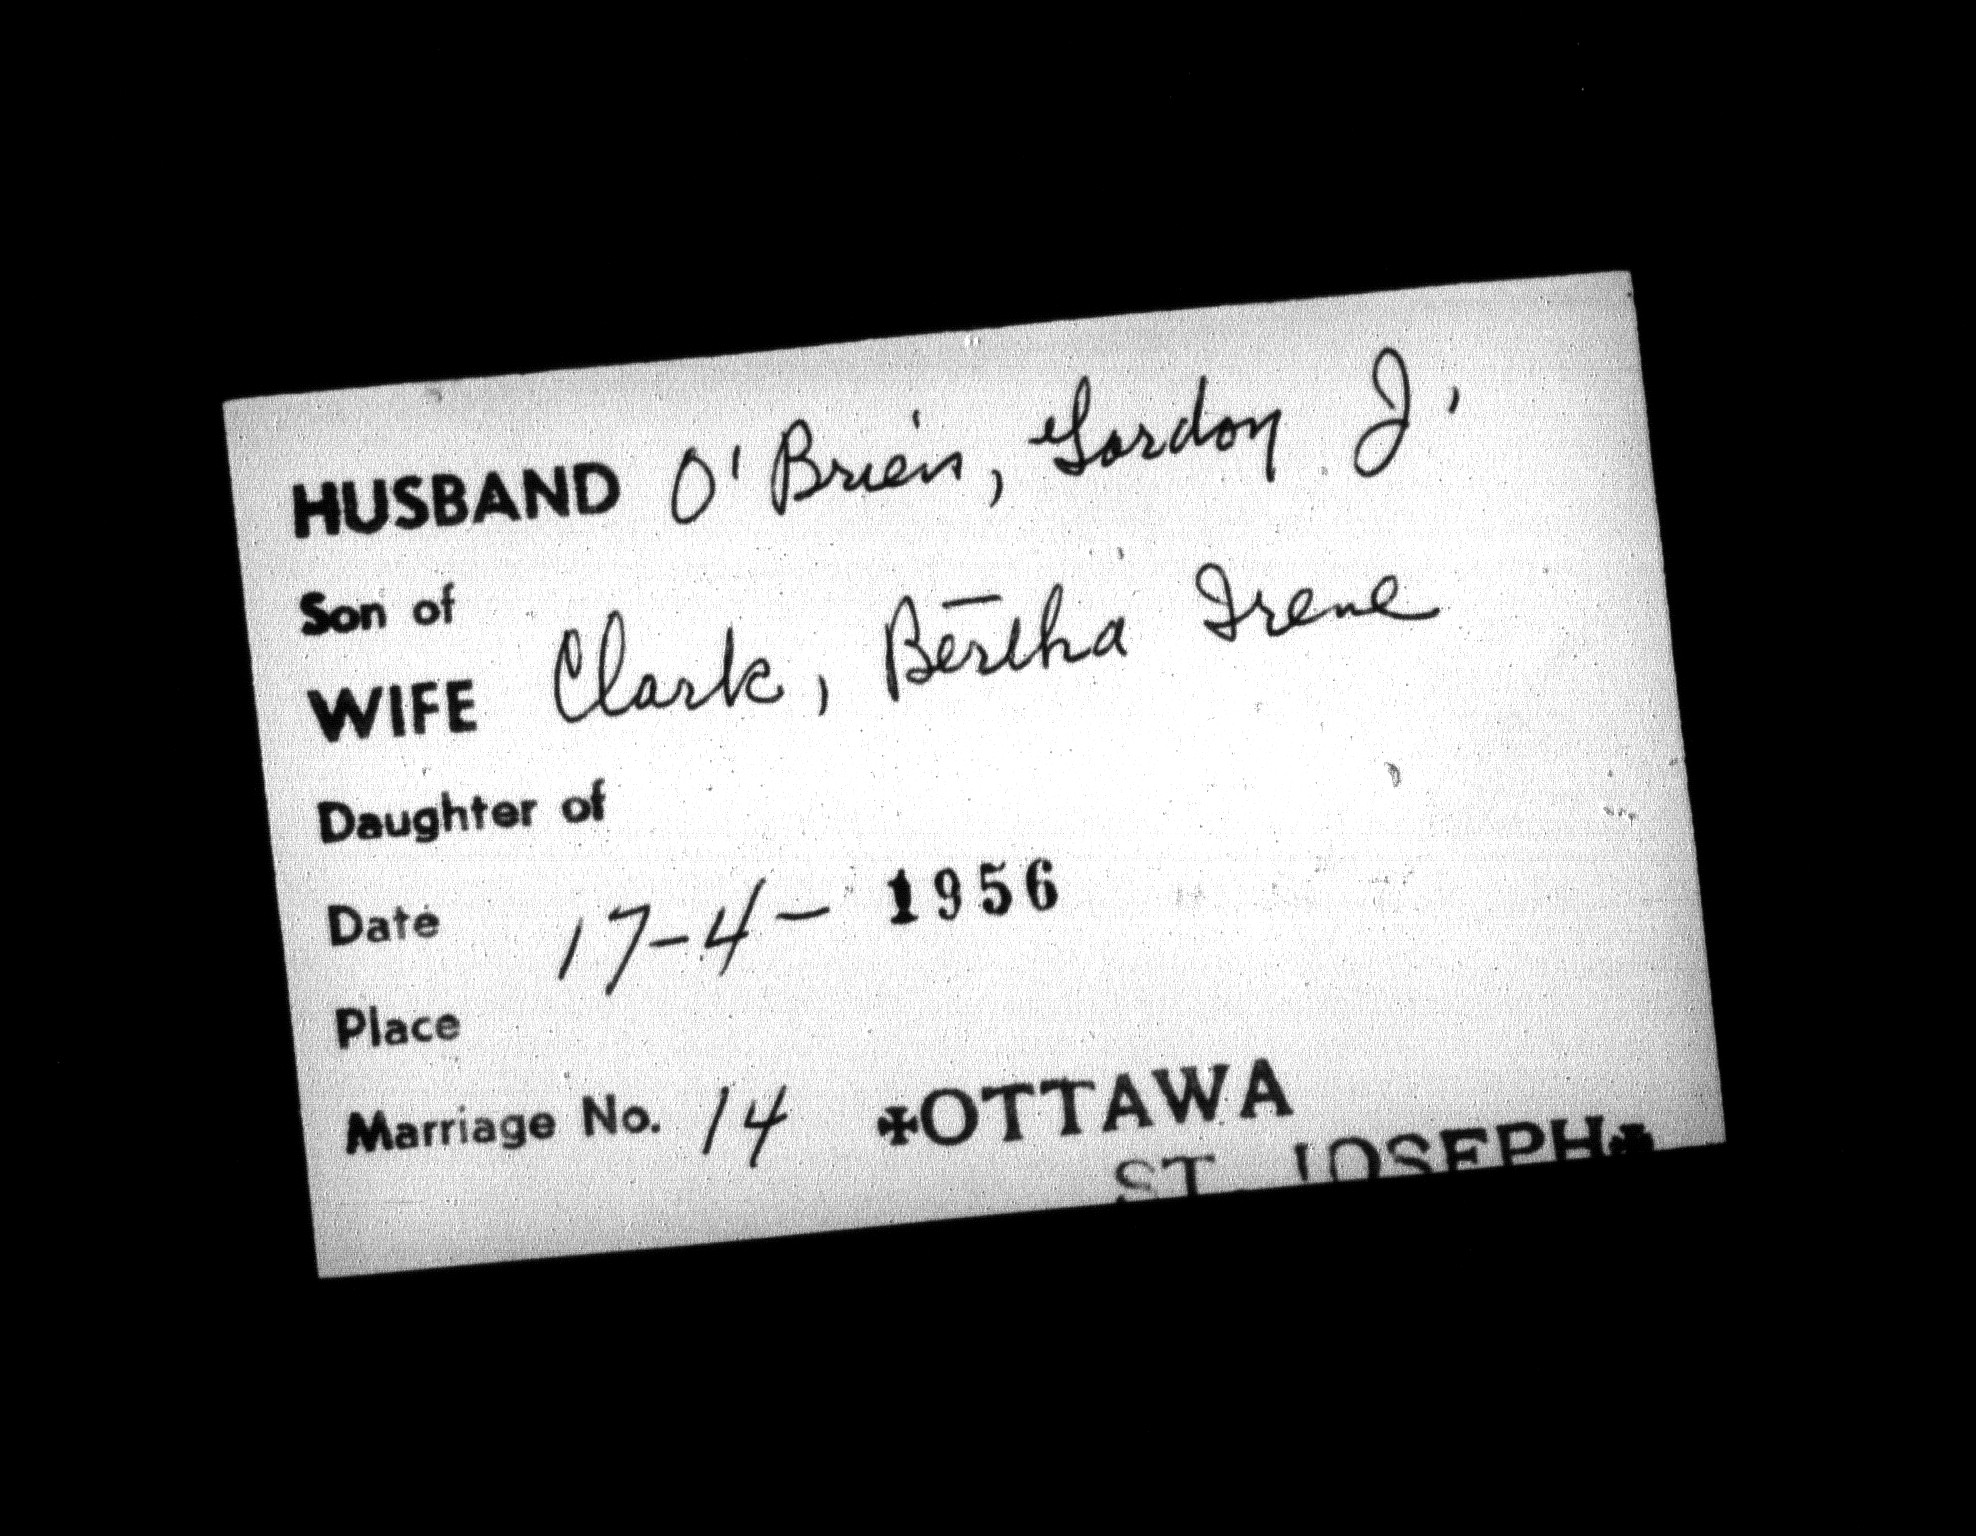 HUSBAND O'Brien, Gordon J.
Son of
WIFE Clark, Bertha Irene
Daughter of
Date 17-4- 1956
Place
Marriage No. 14 ✠OTTAWA
ST. JOSEPH✠